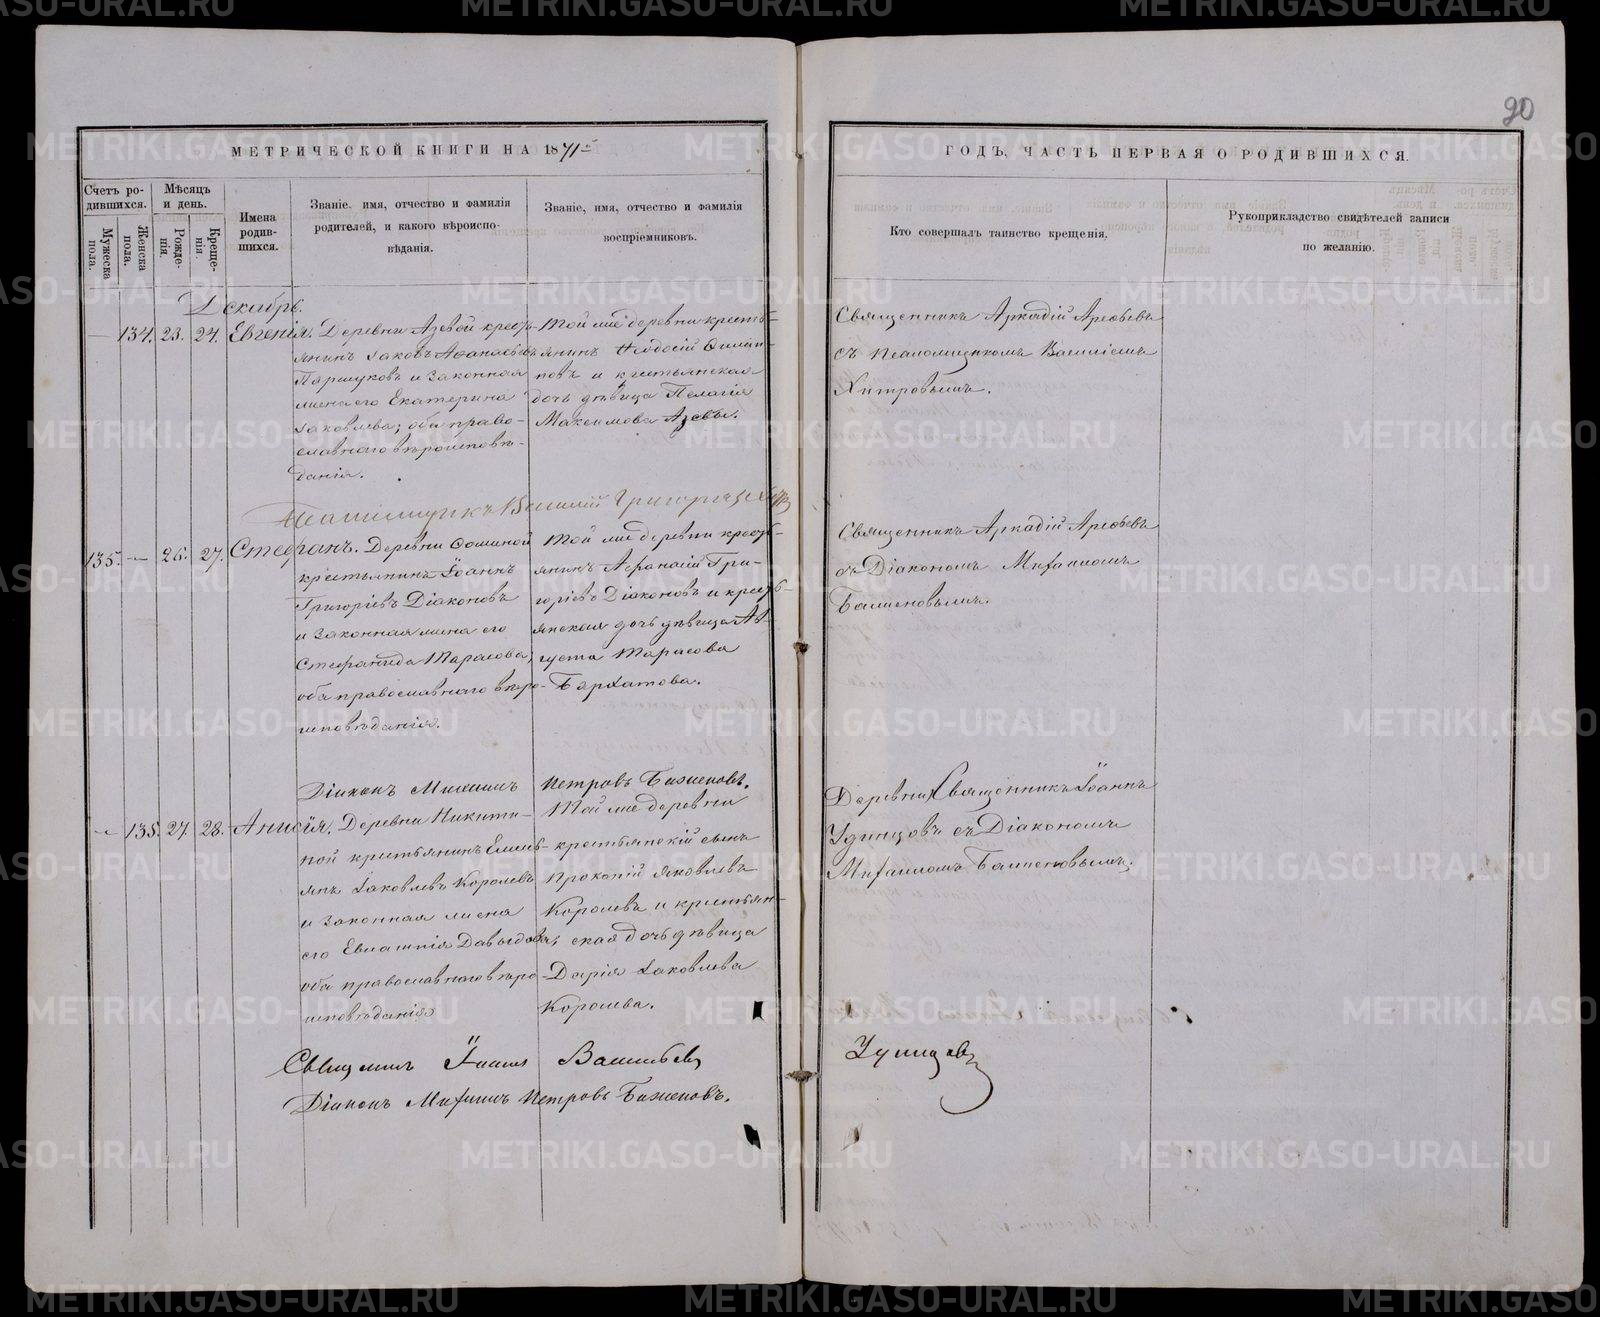 90
МЕТРИЧЕСКОЙ КНИГИ НА 1871
ГОДЪ, ЧАСТЬ ПЕРВАЯ О РОДИВШИХСЯ.
Счетъ ро-
дившихся.
Мужеска
пола.
Женска
пола.
Мѣсяцъ
и день.
Рожде-
нія.
Креще-
нія.
Имена
родив-
шихся.
Званіе, имя, отчество и фамилія
родителей, и какого вѣроиспо-
вѣданія.
Званіе, имя, отчество и фамилія
воспріемниковъ.
Кто совершалъ таинство крещенія.
Рукоприкладство свидѣтелей записи
по желанію.
Декабрь.
134. 23. 24. Евгенія.
Деревни Азевой кресть-
янинъ Іаковъ Аѳанасьевъ
Паршуковъ и законная
жена его Екатерина
Іаковлева; оба право-
славнаго вѣроисповѣ-
данія.
Той же деревни кресть-
янинъ Ѳеодосій Филип-
повъ и крестьянская
дочь дѣвица Пелагія
Максимова Азевы.
Священникъ Аркадій Арефьевъ
съ псаломщикомъ Василіемъ
Хитровымъ.
Псаломщикъ Василій Григорьевъ
135. 26. 27. Стефанъ.
Деревни Фоминой
крестьянинъ Іоаннъ
Григоріевъ Діаконовъ
и законная жена его
Стефанида Тарасова;
оба православнаго вѣро-
исповѣданія.
Той же деревни кресть-
янинъ Аѳанасій Гри-
горіевъ Діаконовъ и кресть-
янская дочь дѣвица Ав-
густа Тарасова
Бархатова.
Священникъ Аркадій Арефьевъ
съ Діакономъ Михаиломъ
Баженовымъ.
Діаконъ Михаилъ Петровъ Баженовъ.
135. 27. 28. Анисія.
Деревни Никити-
ной крестьянинъ Емель-
янъ Іаковлевъ Королевъ
и законная жена
его Евлампія Давыдова;
оба православнаго вѣро-
исповѣданія
Той же деревни
крестьянскій сынъ
Прокопій Яковлевъ
Королевъ и крестьян-
ская дочь дѣвица
Дарія Іаковлева
Королева.
Деревни Священникъ Іоаннъ
Удинцовъ съ Діакономъ
Михаиломъ Баженовымъ.
Священникъ Іоаннъ Васильевъ Удинцовъ
Діаконъ Михаилъ Петровъ Баженовъ.
METRIKI.GASO-URAL.RU